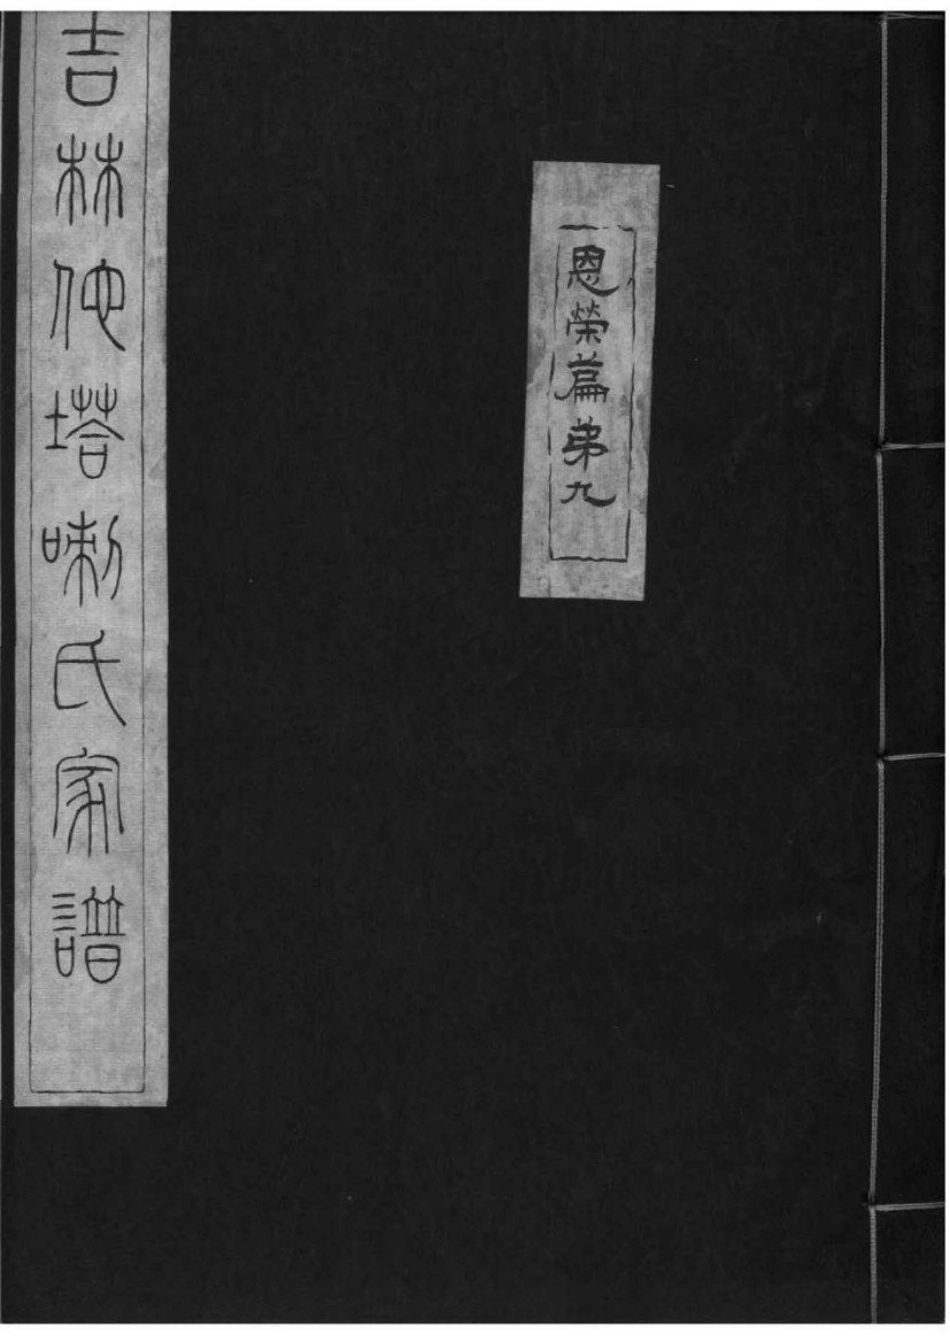 恩榮篇弟九
吉林他塔喇氏家譜